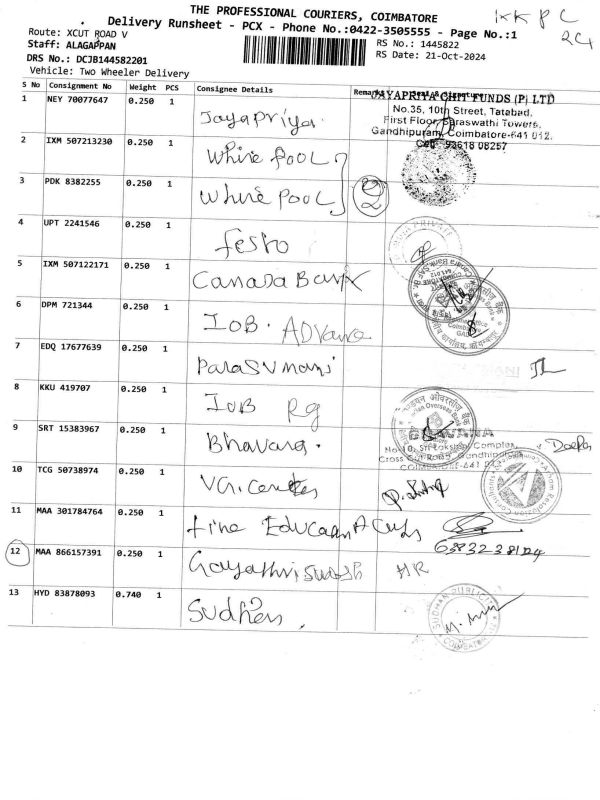 THE PROFESSIONAL COURIERS, COIMBATORE
Delivery Runsheet - PCX - Phone No.:0422-3505555 - Page No.:1
KKPC
Route: XCUT ROAD V
Staff: ALAGAPPAN
RS No.: 1445822
DRS No.: DCJB144582201
RS Date: 21-Oct-2024
Vehicle: Two Wheeler Delivery
S No Consignment No Weight PCS Consignee Details Remarks
1 NEY 70077647 0.250 1 Jayapriya.
JAYAPRIYA CHIT FUNDS (P) LTD
No.35, 10th Street, Tatabad,
First Floor, Saraswathi Towers,
Gandhipuram, Coimbatore-641 012.
Cell: 93618 08257
2 IXM 507213230 0.250 1 whirepool
3 PDK 8382255 0.250 1 whirepool 2
4 UPT 2241546 0.250 1 festo
5 IXM 507122171 0.250 1 Canara Bank
6 DPM 721344 0.250 1 IOB. ADvance
7 EDQ 17677639 0.250 1 Parasvmani
8 KKU 419707 0.250 1 IOB Rg
9 SRT 15383967 0.250 1 Bhavana.
Cross Cut Road, Gandhipuram
COIMBATORE-641 012
10 TCG 50738974 0.250 1
11 MAA 301784764 0.250 1 fine
12 MAA 866157391 0.250 1 HR
13 HYD 83878093 0.740 1
SUDHAN PUBLIC
COIMBATORE